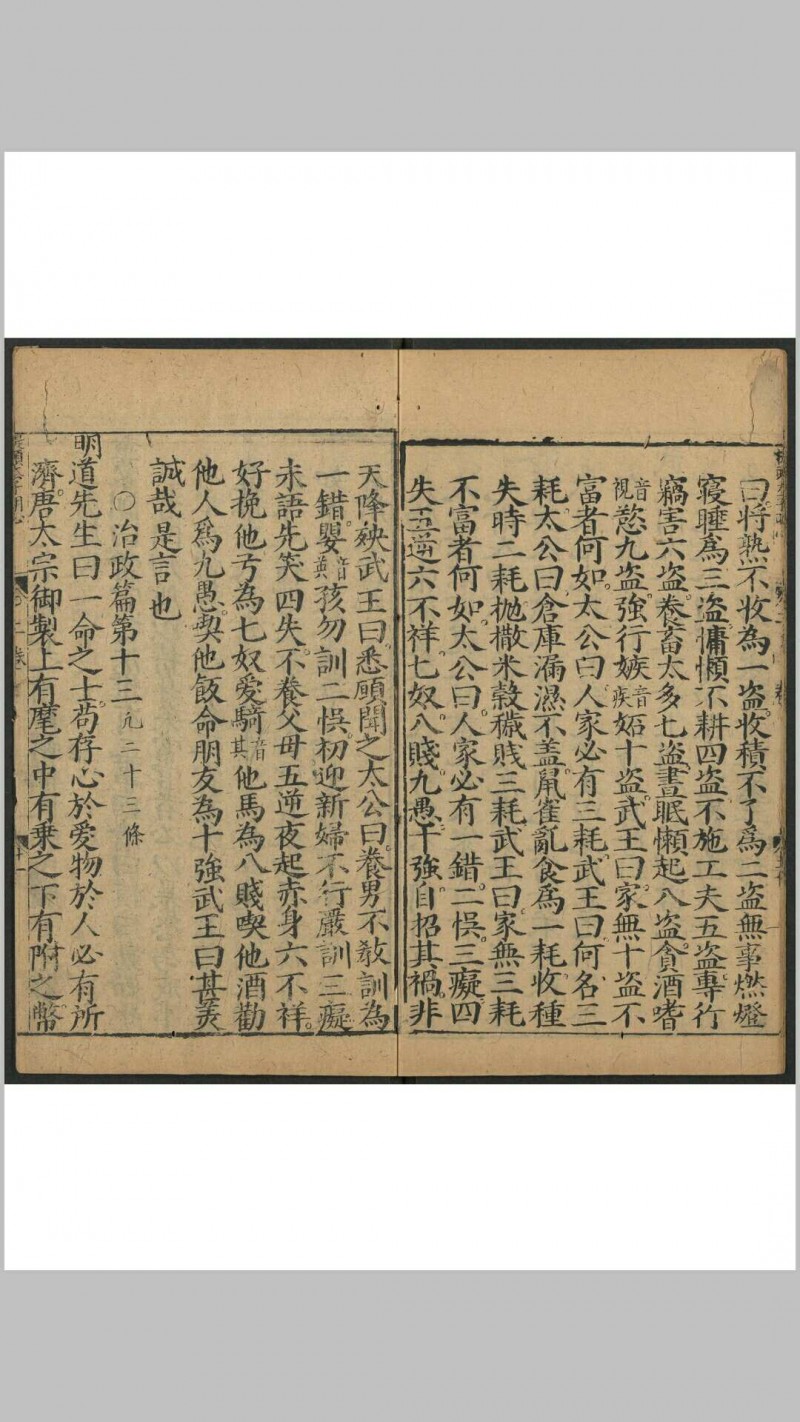 曰将熟不收為一盗。收積不了爲二盗無事燃燈
寝睡爲三盗。慵懶不耕四盗不施工夫五盗。專行
竊害六盗。養畜太多七盗。晝眠懶起八盗。貪酒嗜
音視慾九盗。強行嫉音疾妬十盗。武王曰家無十盗不
富者何如。太公曰人家必有三耗。武王曰何名三
耗。太公曰倉庫漏濕不盖。鼠雀亂食爲一耗。收種
失時二耗抛撒米穀穢賎三耗武王曰家無三耗
不富者何如。太公曰。人家必有一錯。二悮。三癡四
失五逆六不祥。七奴。八賤。九愚。十強。自招其禍。非
天降殃武王曰。悉願聞之太公曰。養男不教訓為
一錯。嬰音英孩勿訓二悮初迎新婦不行嚴訓三癡
未語先笑四失。不養父母五逆夜起赤身六不祥。
好挽他弓為七奴愛騎音其他馬為八賤喫他酒勸
他人爲九愚。喫他飯命朋友為十強武王曰甚美
誠哉是言也
○治政篇第十三凡二十三條
明道先生曰一命之士苟存心於愛物於人必有所
濟。唐太宗御製上有麾之中有乗之下有附之幣